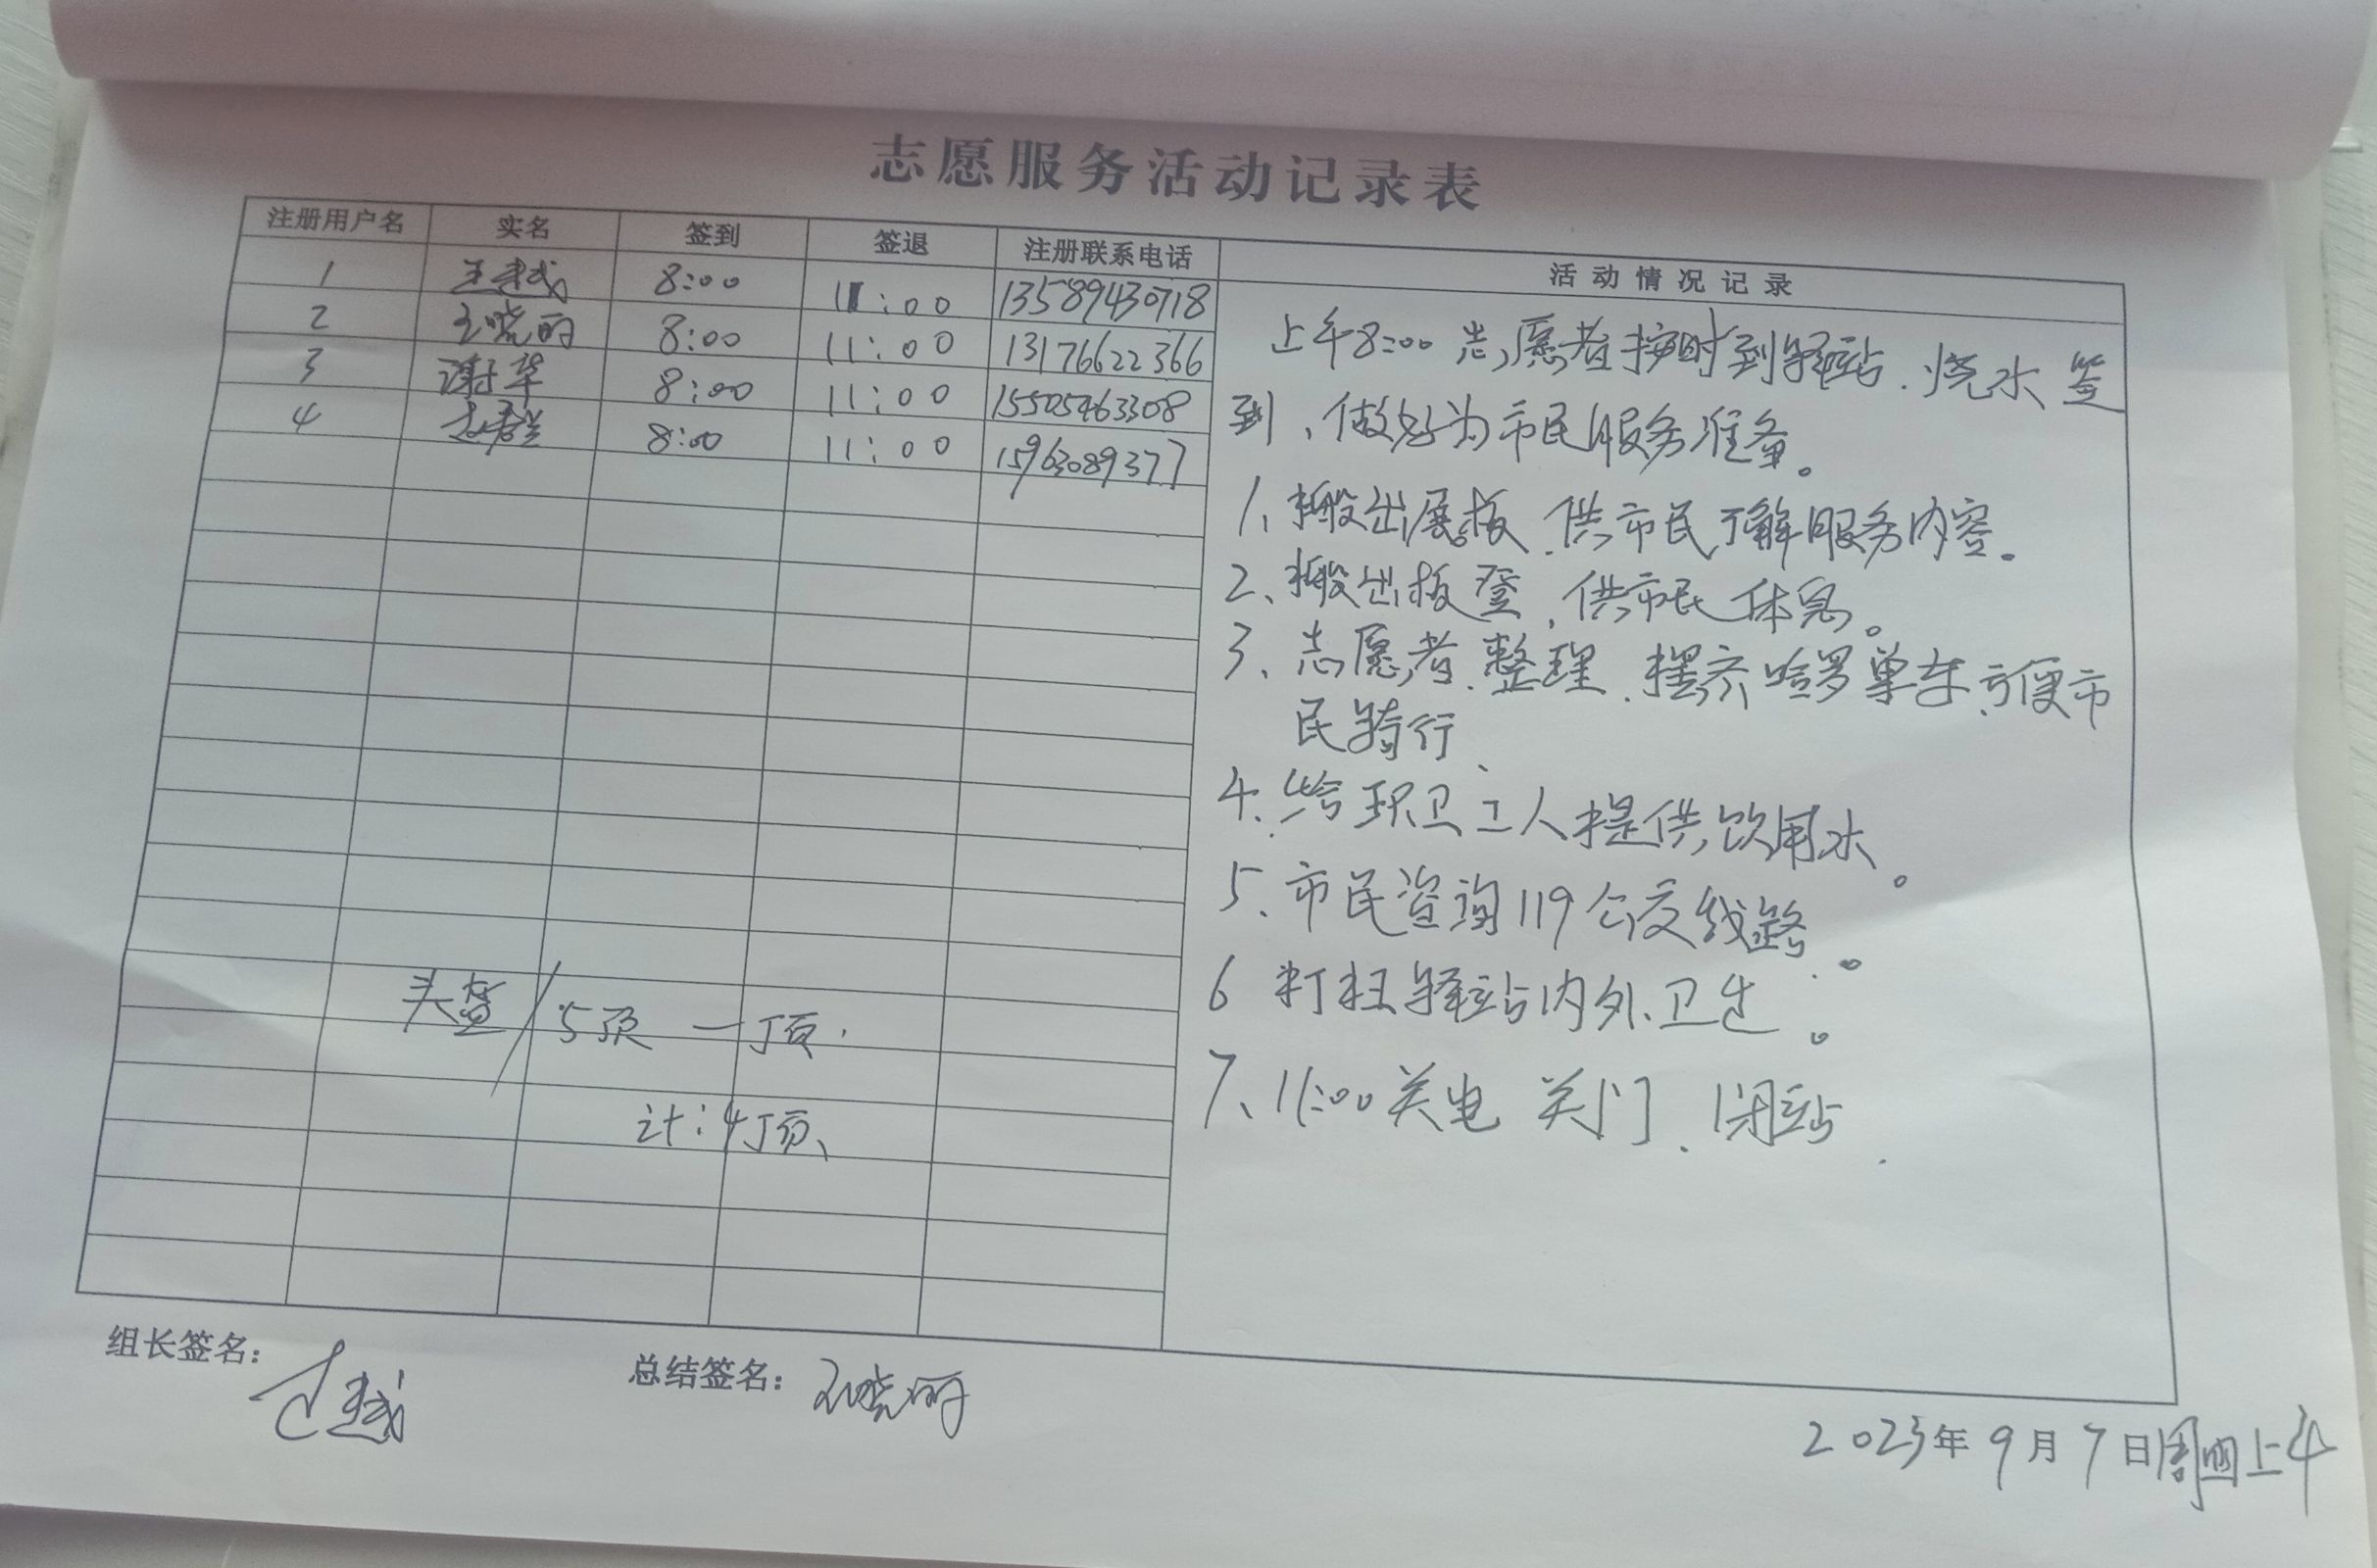 志愿服务活动记录表
注册用户名 实名 签到 签退 注册联系电话 活动情况记录
1 8:00 11:00 13589430718
2 王晓丽 8:00 11:00 13176622366
3 谢华 8:00 11:00 15505463308
4 8:00 11:00 15963089377
上午8:00 志愿者按时到驿站、烧水 签
到、做好为市民服务准备。
1、搬出展板、供市民了解服务内容。
2、搬出板登,供市民休息。
3、志愿者、整理、摆齐哈罗单车、方便市
民骑行、
4、给环卫工人提供饮用水。
5、市民资询119公交线路。
6 打扫驿站内外卫生。
7、11:00关电 关门、闭站.
头盔/5顶 一顶.
计:4顶、
组长签名:
总结签名:王晓丽
2023年9月7日周四上午